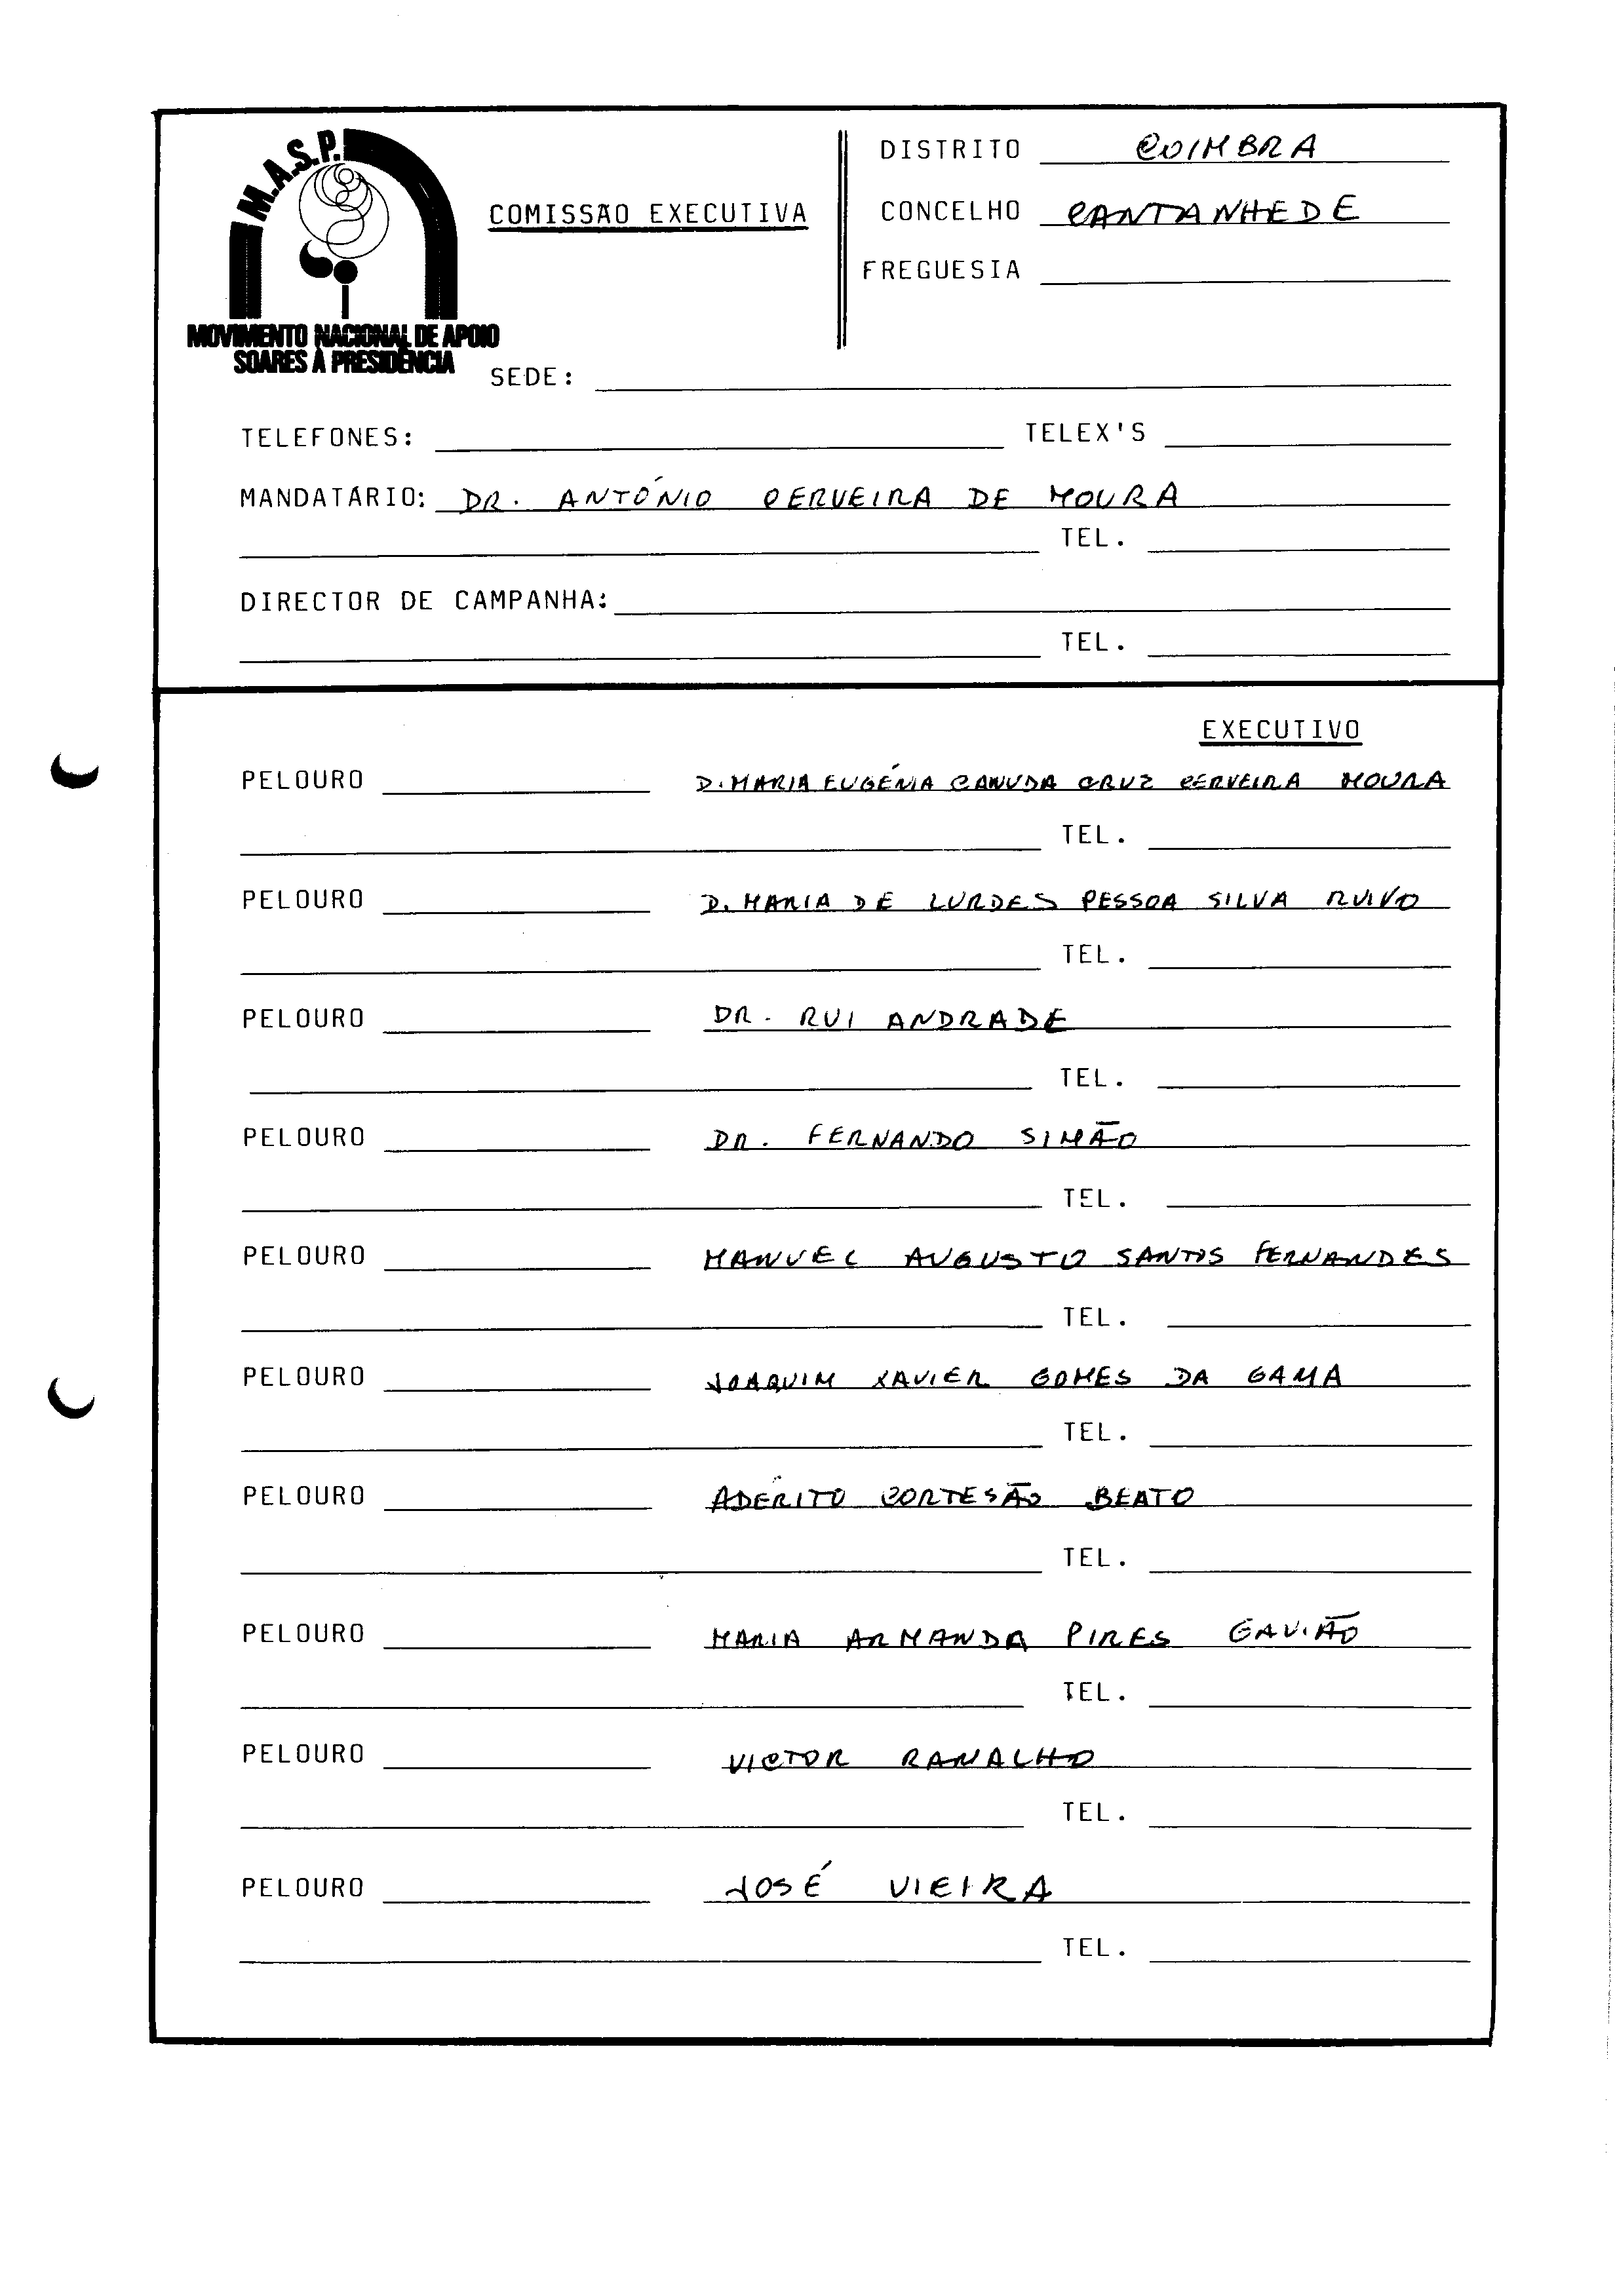 M.A.S.P.
MOVIMENTO NACIONAL DE APOIO
SOARES À PRESIDÊNCIA
COMISSÃO EXECUTIVA
DISTRITO COIMBRA
CONCELHO CANTANHEDE
FREGUESIA
SEDE:
TELEFONES: TELEX'S
MANDATÁRIO: DR. ANTÓNIO CERVEIRA DE MOURA
TEL.
DIRECTOR DE CAMPANHA:
TEL.
EXECUTIVO
PELOURO D. MARIA EUGÉNIA CANUDA CRUZ CERVEIRA MOURA
TEL.
PELOURO D. MARIA DE LURDES PESSOA SILVA RUIVO
TEL.
PELOURO DR. RUI ANDRADE
TEL.
PELOURO DR. FERNANDO SIMÃO
TEL.
PELOURO MANUEL AUGUSTO SANTOS FERNANDES
TEL.
PELOURO JOAQUIM XAVIER GOMES DA GAMA
TEL.
PELOURO ADÉRITO CORTESÃO BEATO
TEL.
PELOURO MARIA ARMANDA PIRES GAVIÃO
TEL.
PELOURO VICTOR RAMALHO
TEL.
PELOURO JOSÉ VIEIRA
TEL.